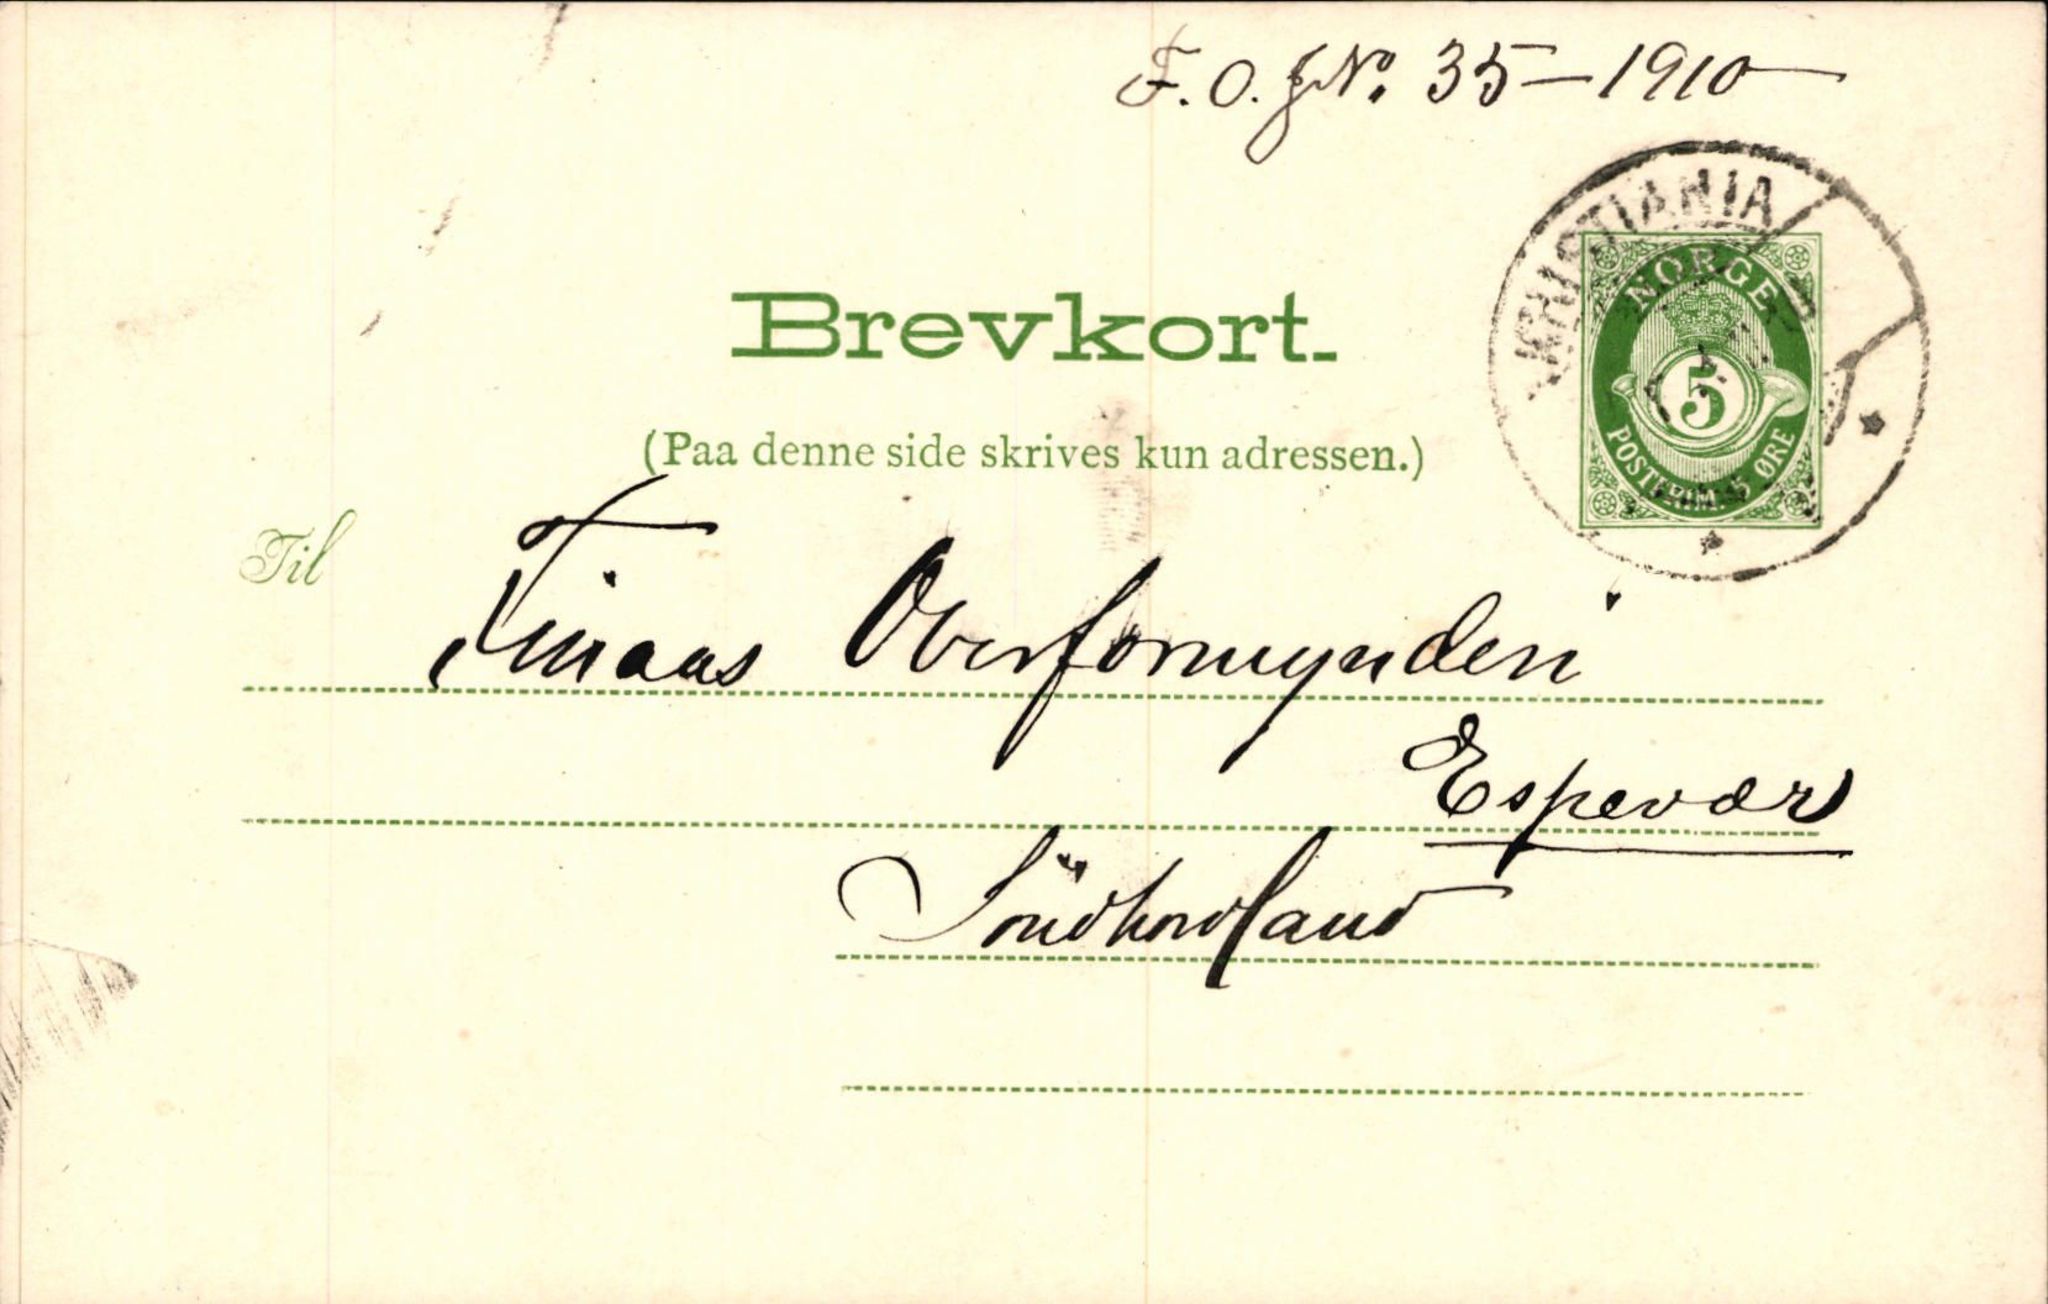 F. O. J№. 35 – 1910
KRISTIANIA
NORGE
5
POSTFRIM. 5 ØRE
Brevkort.
(Paa denne side skrives kun adressen.)
Til
Finaas Overformynderi
Espevær
Söndhordland